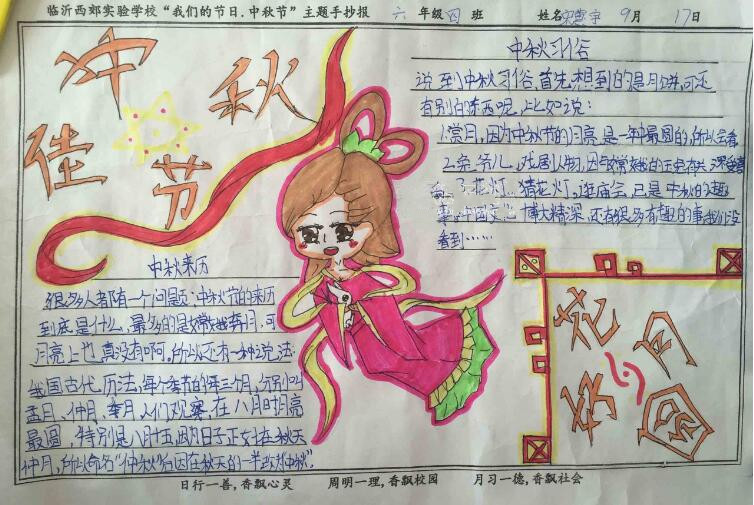 临沂西郊实验学校“我们的节日.中秋节”主题手抄报 六 年级四班 姓名 9月 17日
中秋
佳节
中秋习俗
说到中秋习俗,首先想到的是月饼,可还
有别的东西呢,比如说:
1.赏月,因为中秋节的月亮是一年中最圆的,所以会看
2.兔爷儿,戏剧人物,因与嫦娥的玉兔有关,深受喜
3.花灯、猜花灯,逛庙会,已是中秋的趣
事,中国文化博大精深,还有很多有趣的事我们没
看到……
中秋来历
很多人都有一个问题:中秋节的来历
到底是什么,最多的是嫦娥奔月,可
月亮上也真没有啊,所以还有一种说法:
我国古代历法,每个季节的第三个月,分别叫
孟月、仲月、季月,人们观察,在八月时月亮
最圆,特别是八月十五,因为日子正好在秋天
仲月,所以命名“仲秋”,因在秋天的一半,改为“中秋”。
花好月圆
日行一善,香飘心灵 周明一理,香飘校园 月习一德,香飘社会